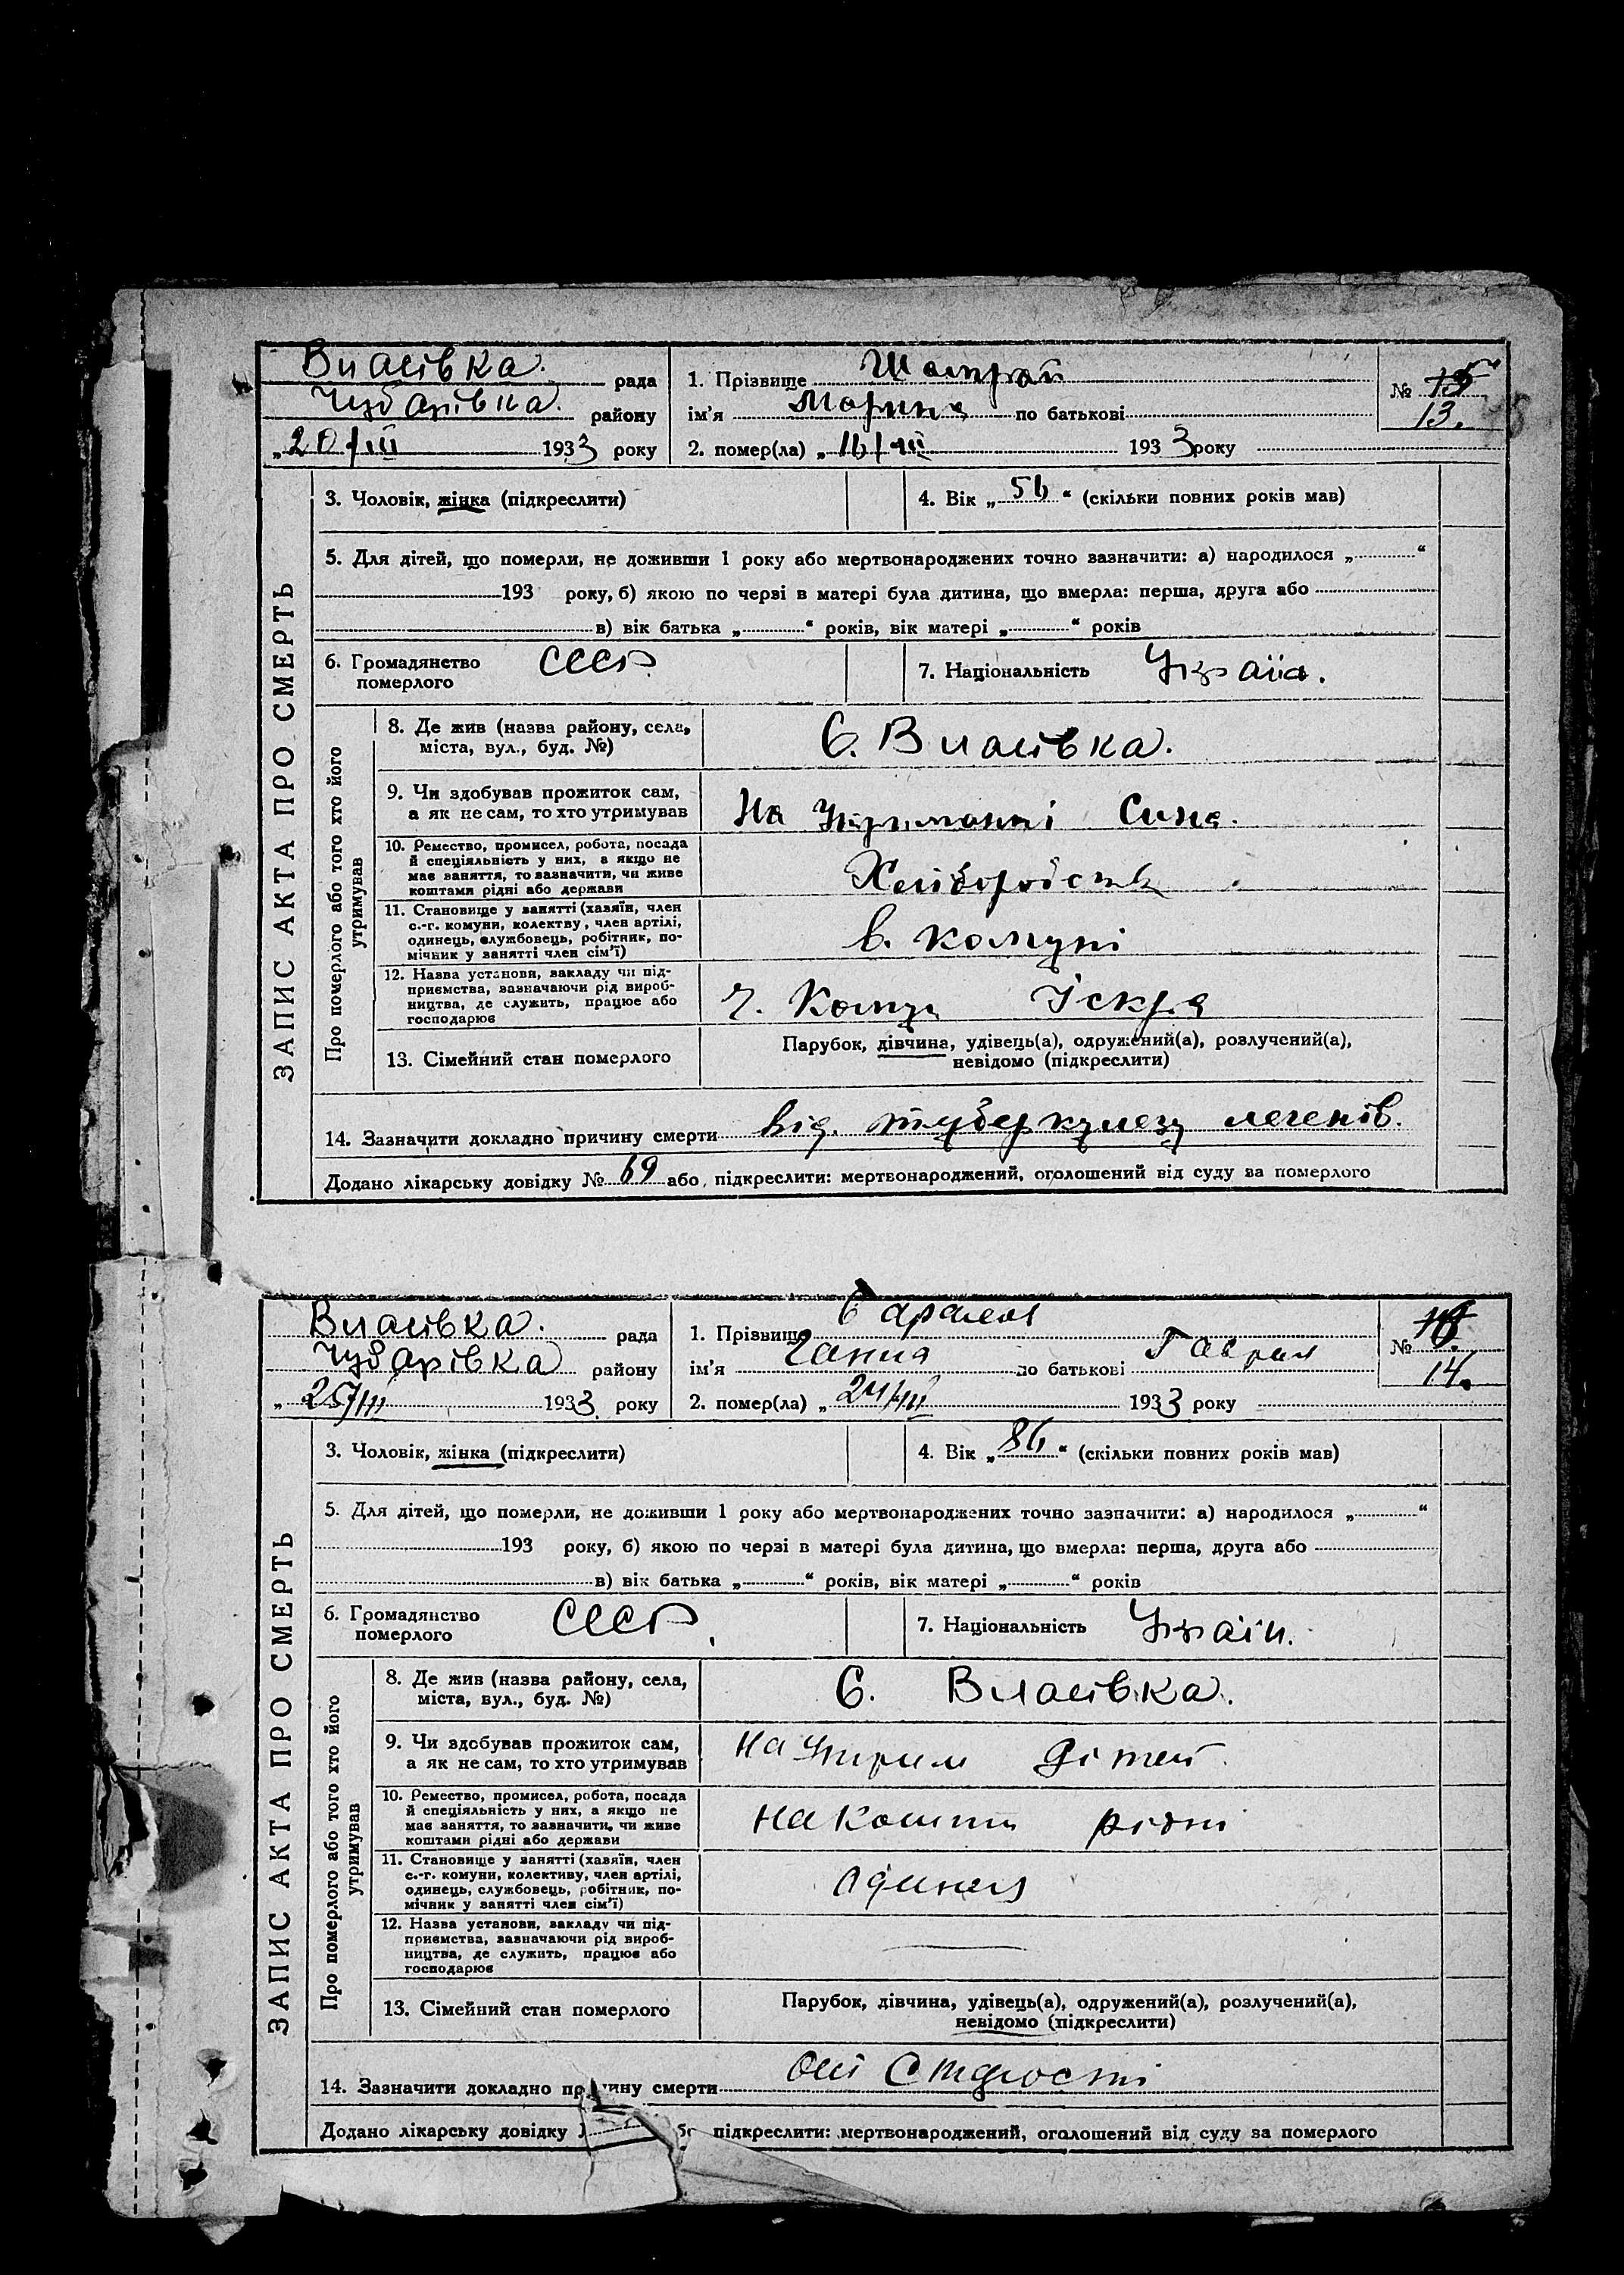 Власівка. рада
Чубарівка. району
„20/III 1933 року
1. Прізвище Шамрай
ім'я Марина по батькові
2. помер(ла) „16/III 1933 року
№ 15
13.
ЗАПИС АКТА ПРО СМЕРТЬ
3. Чоловік, жінка (підкреслити)
4. Вік „56“ (скільки повних років мав)
5. Для дітей, що померли, не доживши 1 року або мертвонароджених точно зазначити: а) народилося „ “
193 року, б) якою по черзі в матері була дитина, що вмерла: перша, друга або
в) вік батька „ “ років, вік матері „ “ років
6. Громадянство
померлого
СССР
7. Національність Україн.
Про померлого або того хто його
утримував
8. Де жив (назва району, села,
міста, вул., буд. №)
С. Власівка.
9. Чи здобував прожиток сам,
а як не сам, то хто утримував
На утриманні Сина.
10. Ремество, промисел, робота, посада
й спеціяльність у них, а якщо не
має заняття, то зазначити, чи живе
коштами рідні або держави
Хліборобств
11. Становище у занятті (хазяїн, член
с.-г. комуни, колектву, член артілі,
одинець, службовець, робітник, по-
мічник у занятті член сім'ї)
в. комуні
12. Назва установи, закладу чи під-
приємства, зазначаючи рід вироб-
ництва, де служить, працює або
господарює
Іскра
13. Сімейний стан померлого
Парубок, дівчина, удівець(а), одружений(а), розлучений(а),
невідомо (підкреслити)
14. Зазначити докладно причину смерти від. туберкулезу легенів.
Додано лікарську довідку № 69 або, підкреслити: мертвонароджений, оголошений від суду за померлого
Власівка. рада
Чубарівка району
„25/III 1933 року
1. Прізвище
ім'я Ганна по батькові Гаврил
2. помер(ла) „24/III 1933 року
№
14.
ЗАПИС АКТА ПРО СМЕРТЬ
3. Чоловік, жінка (підкреслити)
4. Вік „86“ (скільки повних років мав)
5. Для дітей, що померли, не доживши 1 року або мертвонароджених точно зазначити: а) народилося „ “
193 року, б) якою по черзі в матері була дитина, що вмерла: перша, друга або
в) вік батька „ “ років, вік матері „ “ років
6. Громадянство
померлого
СССР
7. Національність Україн.
Про померлого або того хто його
утримував
8. Де жив (назва району, села,
міста, вул., буд. №)
С. Власівка.
9. Чи здобував прожиток сам,
а як не сам, то хто утримував
На утрим дітей
10. Ремество, промисел, робота, посада
й спеціяльність у них, а якщо не
має заняття, то зазначити, чи живе
коштами рідні або держави
на кошти рідні
11. Становище у занятті (хазяїн, член
с.-г. комуни, колективу, член артілі,
одинець, службовець, робітник, по-
мічник у занятті член сім'ї)
одинець
12. Назва установи, закладу чи під-
приємства, зазначаючи рід вироб-
ництва, де служить, працює або
господарює
13. Сімейний стан померлого
Парубок, дівчина, удівець(а), одружений(а), розлучений(а),
невідомо (підкреслити)
14. Зазначити докладно причину смерти Старости
Додано лікарську довідку підкреслити: мертвонароджений, оголошений від суду за померлого